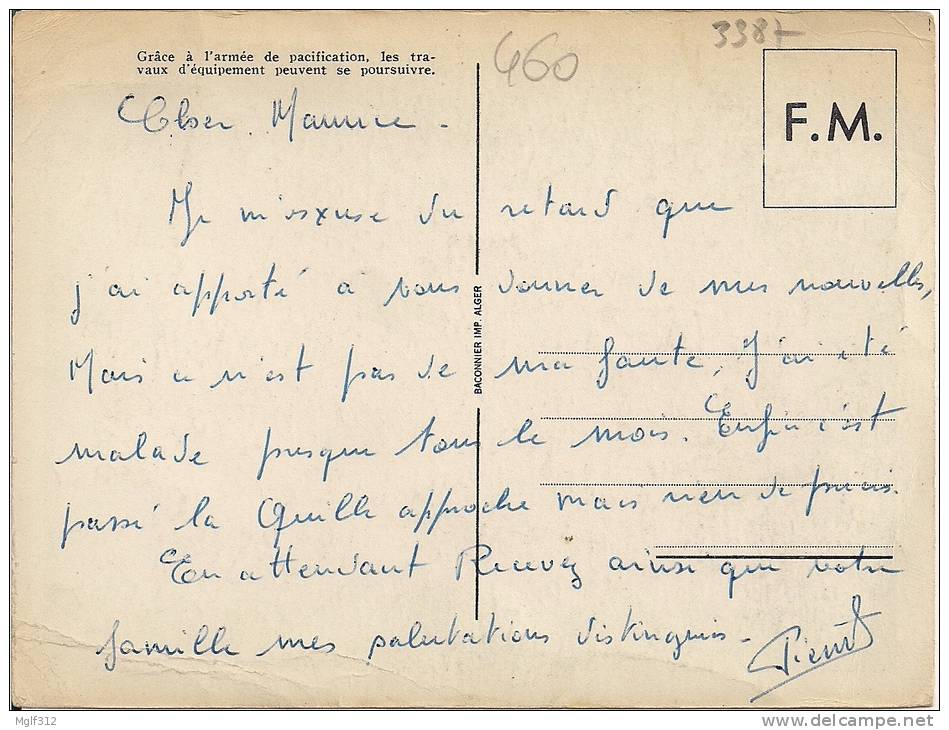 3387
460
Grâce à l'armée de pacification, les tra-
vaux d'équipement peuvent se poursuivre.
F.M.
Cher Maurice -
Je m'exuse du retard que
j'ai apporté a vous donner de mes nouvelles,
Mais ce n'est pas de ma faute, J'ai été
malade presque tous le mois. Enfin c'est
passé la Quille approche mais rien de précis.
En attendant Recevez ainsi que votre
famille mes salutations distingués -
BACONNIER IMP. ALGER
Mglf312
www.delcampe.net